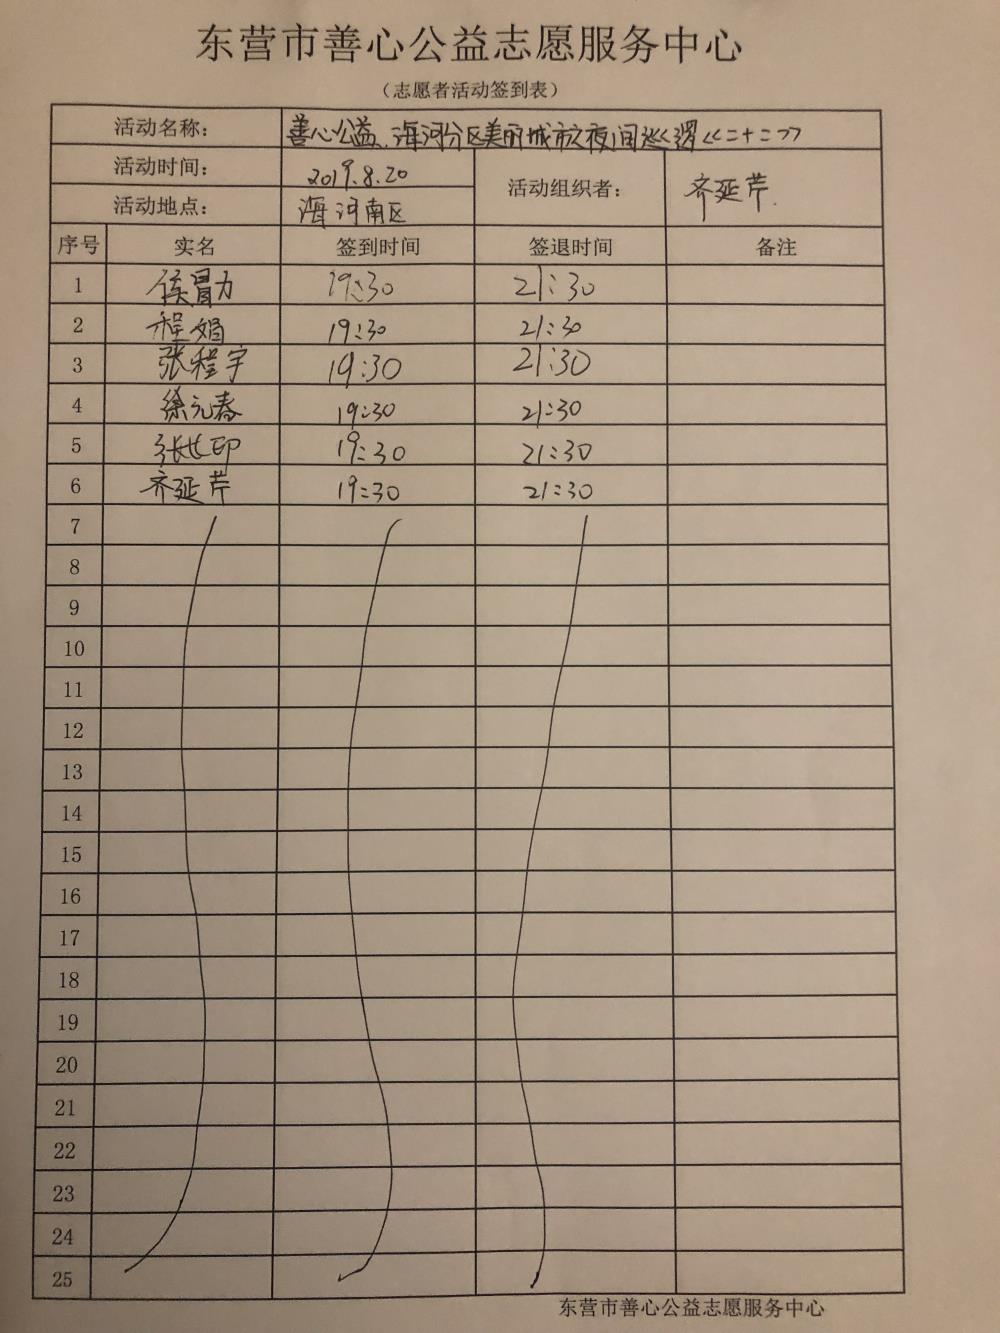 东营市善心公益志愿服务中心
（志愿者活动签到表）
活动名称： 善心公益.海河分区美丽城市之夜间巡逻<<二十二>>
活动时间： 2019.8.20 活动组织者： 齐延芹
活动地点： 海河南区
序号 实名 签到时间 签退时间 备注
1 侯冒力 19:30 21:30
2 程娟 19:30 21:30
3 张程宇 19:30 21:30
4 徐元春 19:30 21:30
5 张世印 19:30 21:30
6 齐延芹 19:30 21:30
7
8
9
10
11
12
13
14
15
16
17
18
19
20
21
22
23
24
25
东营市善心公益志愿服务中心